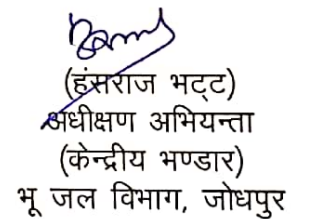 (हंसराज भट्ट)
अधीक्षण अभियन्ता
(केन्द्रीय भण्डार)
भू जल विभाग, जोधपुर